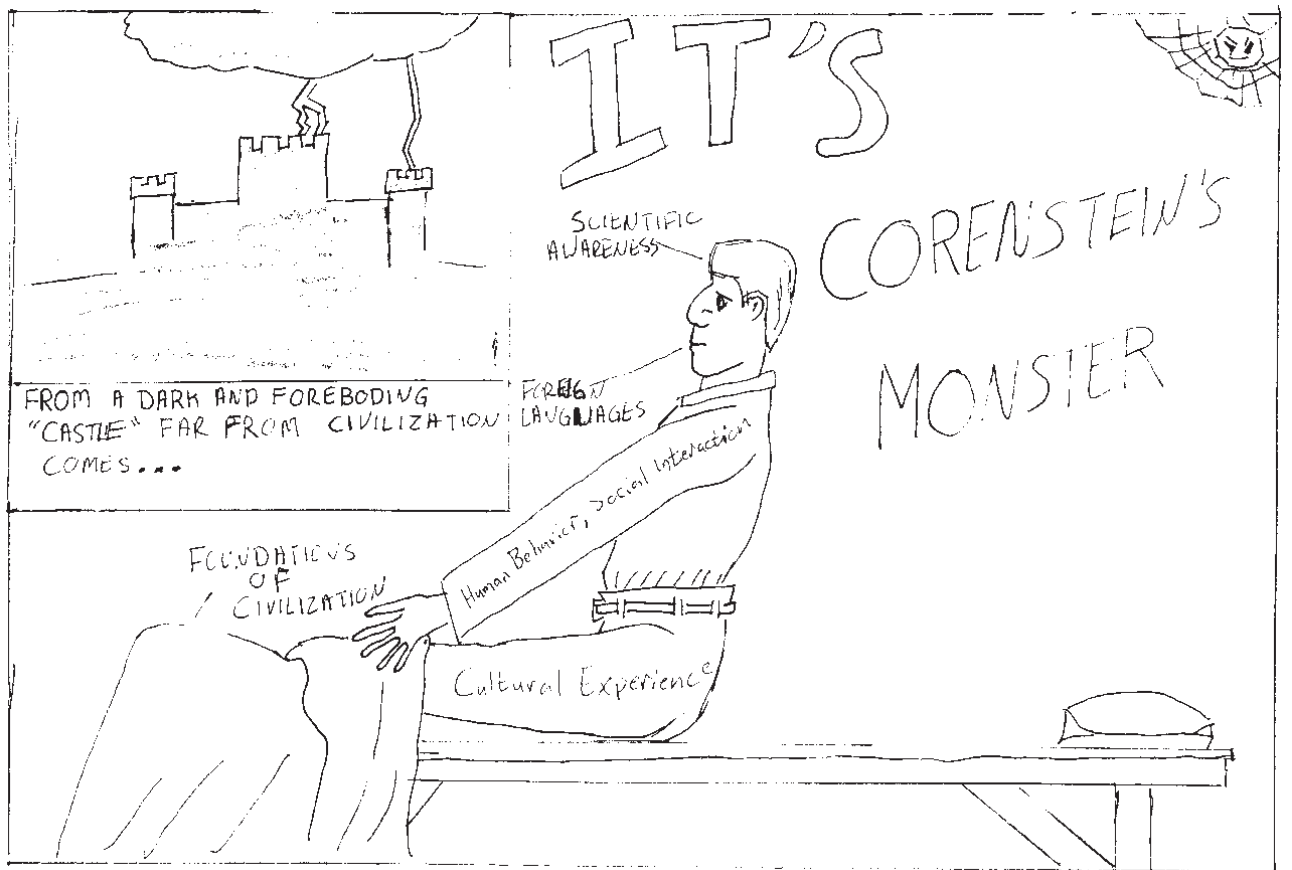 FROM A DARK AND FOREBODING
"CASTLE" FAR FROM CIVILIZATION
COMES...
IT'S
CORENSTEIN'S
MONSTER
SCIENTIFIC
AWARENESS
FOREIGN
LANGUAGES
Human Behavior, Social Interaction
FOUNDATIONS
OF
CIVILIZATION
Cultural Experience